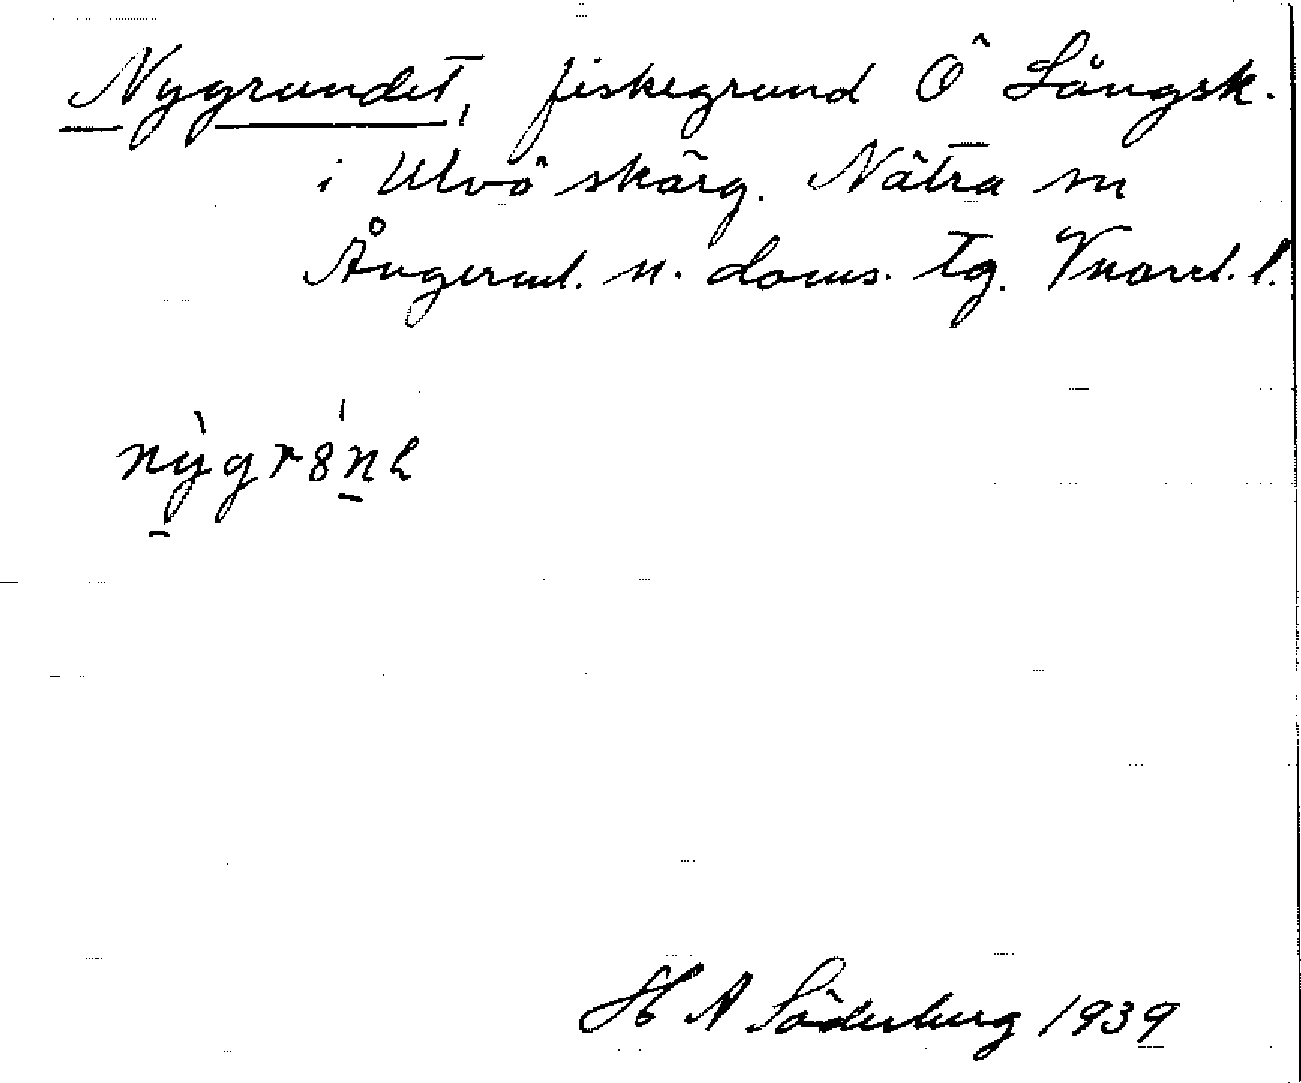 Nygrundet, fiskegrund Ö Långsk.
i Ulvö skärg. Nätra sn
Ångerml. n. doms. tg. Vnorrl. l.
nỳgr8́nl
H A Söderberg 1939